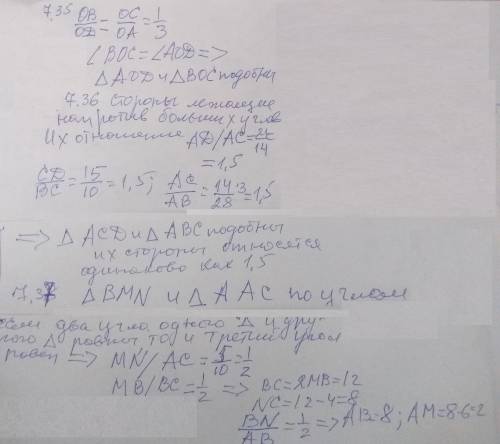 7.35 OB/OD = OC/OA = 1/3
∠BOC = ∠AOD =>
△AOD и △BOC подобны
7.36 стороны лежащие
напротив больших углов
Их отношение AD/AC = 21/14
= 1,5
CD/BC = 15/10 = 1,5; AC/AB = 14·3/28 = 1,5
=> △ACD и △ABC подобны
их стороны относятся
одинаково как 1,5
7.37 △BMN и △AAC по углам
Если два угла одного △ и дру-
гого △ равны то и третий угол
равен => MN/AC = 5/10 = 1/2
MB/BC = 1/2 => BC = 2MB = 12
NC = 12-4 = 8
BN/AB = 1/2 => AB = 8; AM = 8-6 = 2